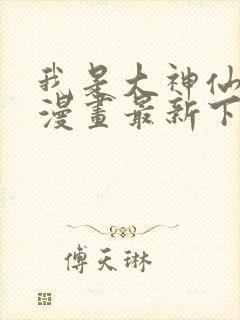 我是大神仙
漫畫最新下
傅天琳